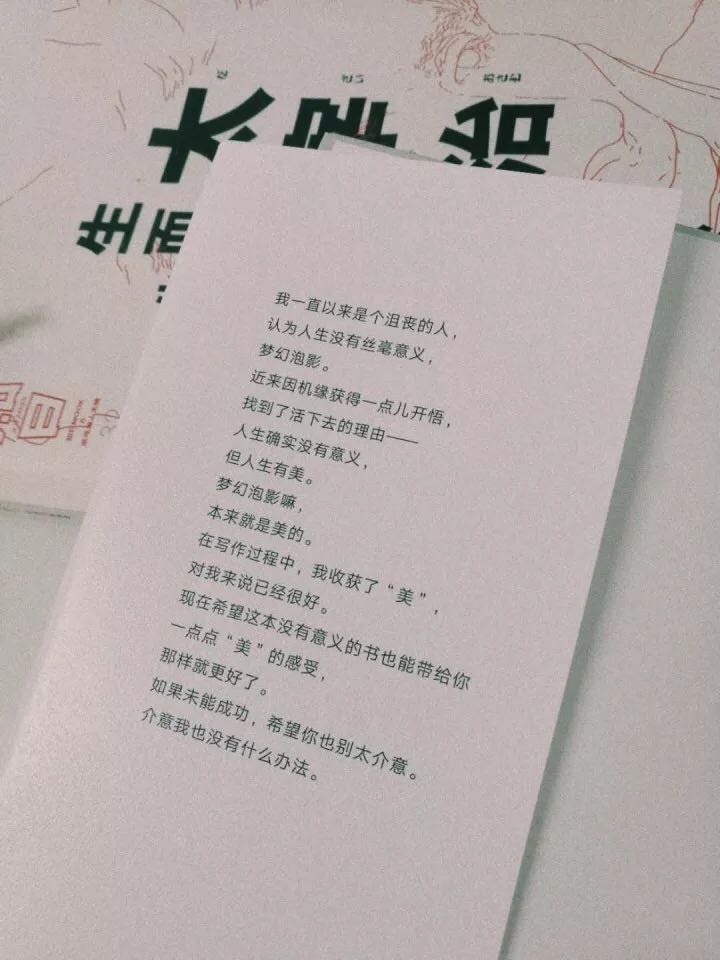 太宰治
生而
我一直以来是个沮丧的人，
认为人生没有丝毫意义，
梦幻泡影。
近来因机缘获得一点儿开悟，
找到了活下去的理由——
人生确实没有意义，
但人生有美。
梦幻泡影嘛，
本来就是美的。
在写作过程中，我收获了“美”，
对我来说已经很好。
现在希望这本没有意义的书也能带给你
一点点“美”的感受，
那样就更好了。
如果未能成功，希望你也别太介意。
介意我也没有什么办法。